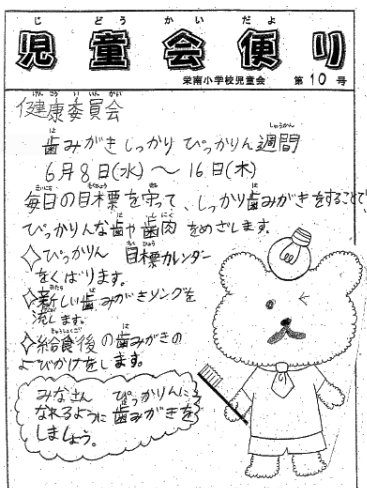 じどうかいだよ
児童会便り
栄南小学校児童会 第10号
けんこういいんかい
健康委員会
歯みがきしっかりぴっかりん週間
6月8日(水)～16日(木)
毎日の目標を守って、しっかり歯みがきをすることで
ぴっかりんな歯や歯肉をめざします。
◇ぴっかりん目標カレンダー
をくばります。
◇新しい歯みがきソングを
流します。
◇給食後の歯みがきの
よびかけをします。
みなさん ぴっかりんに
なれるように歯みがきを
しましょう。